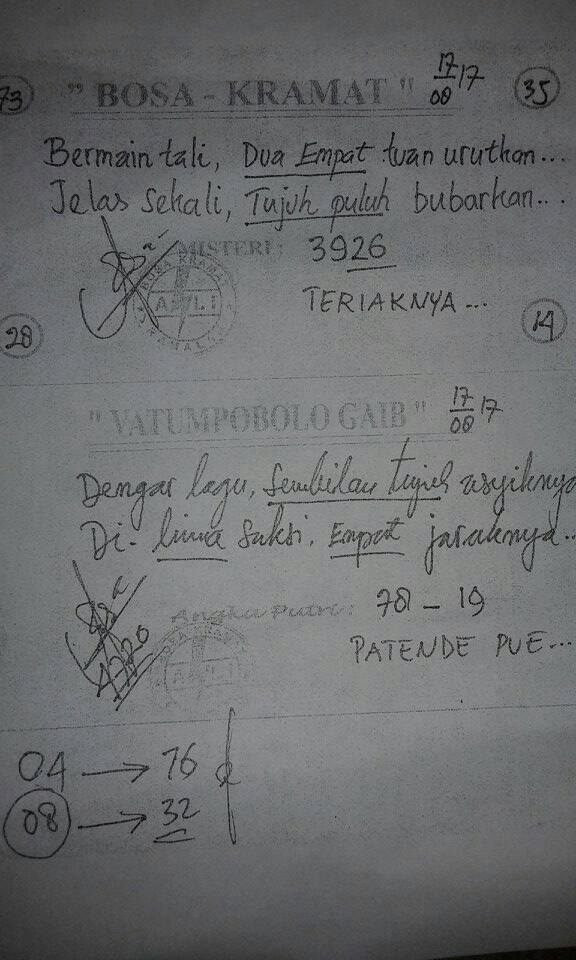 73 " BOSA - KRAMAT " 17/08 17 35
Bermain tali, Dua Empat tuan urutkan...
Jelas Sekali, Tujuh puluh bubarkan...
MISTERI : 3926
BOSA KRAMAT
ASLI
TERIAKNYA...
28 14
" VATUMPOBOLO GAIB " 17/08 17
Dengar lagu, Sembilan tujuh asyiknya
Di - lima saksi, Empat jaraknya...
Angka Putri : 78 - 19
ASLI
PATENDE PUE...
04 → 76
08 → 32